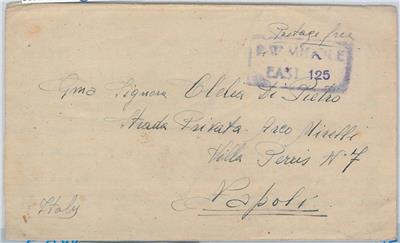 Postage free
P.W. MIDDLE
EAST 125
Gma Signora Clelia Di Pietro
Strada Privata Arco Mirelli
Villa Perris N 7
Napoli
Italy